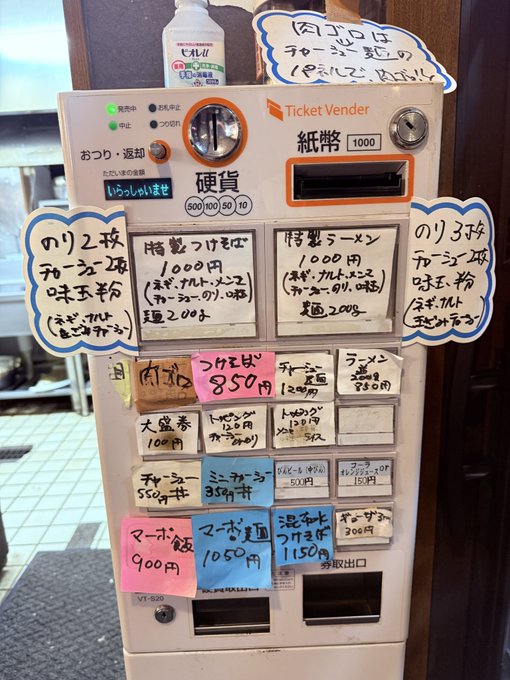 ビオレu
手指の消毒液
肉ゴロは
チャーシュー麺の
パネルで、肉ゴロ!!
発売中
お札中止
中止
つり切れ
Ticket Vender
おつり・返却
紙幣
1000
ただいまの金額
いらっしゃいませ
硬貨
500 100 50 10
のり2枚
チャーシュー2枚
味玉
(ネギ、ナルト
特製つけそば
1000円
(ネギ、ナルト、メンマ
チャーシュー、のり、味玉)
麺200g
特製ラーメン
1000円
(ネギ、ナルト、メンマ
チャーシュー、のり、味玉)
麺200g
のり3枚
チャーシュー2枚
味玉
(ネギ、ナルト
肉ゴロ
つけそば
850円
チャーシュー
麺
1200円
ラーメン
麺200g
850円
大盛券
100円
トッピング
120円
チャーシュー
のり
トッピング
120円
メンマ
ライス
チャーシュー
550円 丼
ミニチャーシュー
350円 丼
びんビール(中びん)
500円
コーラor
オレンジジュース
150円
マーボー飯
900円
マーボー麺
1050円
つけそば
1150円
ギョーザ3ヶ
300円
券取出口
VT-S20